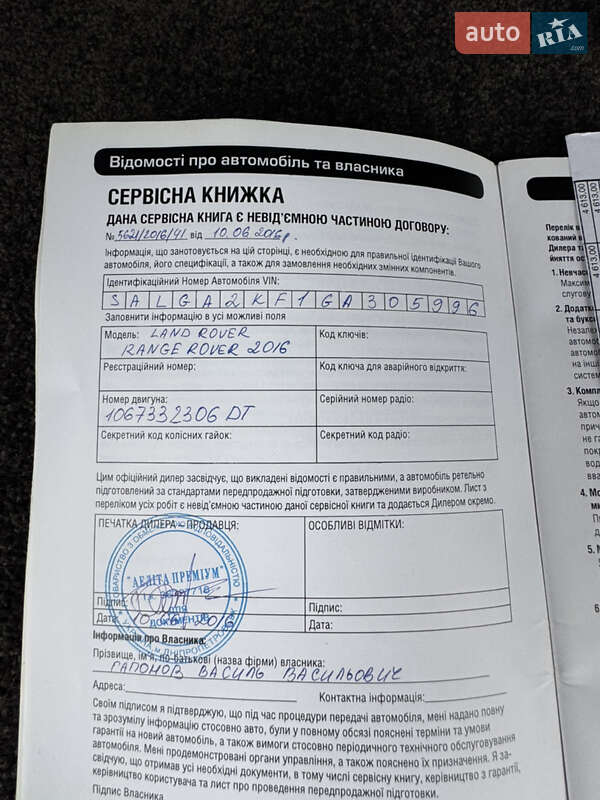 auto RIA .com
Відомості про автомобіль та власника
СЕРВІСНА КНИЖКА
ДАНА СЕРВІСНА КНИГА Є НЕВІД'ЄМНОЮ ЧАСТИНОЮ ДОГОВОРУ:
№ 5621/2016/41 від 10.06 2016р.
Інформація, що занотовується на цій сторінці, є необхідною для правильної ідентифікації Вашого
автомобіля, його специфікації, а також для замовлення необхідних змінних компонентів.
Ідентифікаційний Номер Автомобіля VIN:
SALGA2KF1GA305996
Заповнити інформацію в усі можливі поля
Модель: LAND ROVER
RANGE ROVER 2016
Код ключів:
Реєстраційний номер:
Код ключа для аварійного відкриття:
Номер двигуна:
1067332306 DT
Серійний номер радіо:
Секретний код колісних гайок:
Секретний код радіо:
Цим офіційний дилер засвідчує, що викладені відомості є правильними, а автомобіль ретельно
підготовлений за стандартами передпродажної підготовки, затвердженими виробником. Лист з
переліком усіх робіт є невід'ємною частиною даної сервісної книги та додається Дилером окремо.
ПЕЧАТКА ДИЛЕРА – ПРОДАВЦЯ:
ОСОБЛИВІ ВІДМІТКИ:
"АЕЛІТА ПРЕМІУМ"
ДЛЯ
ДОКУМЕНТІВ
Підпис:
Підпис:
Дата:
Дата:
Інформація про Власника:
Прізвище, ім'я, по-батькові (назва фірми) власника:
ГАПОНОВ ВАСИЛЬ ВАСИЛЬОВИЧ
Адреса:
Контактна інформація:
Своїм підписом я підтверджую, що під час процедури передачі автомобіля, мені надано повну
та зрозумілу інформацію стосовно авто, були у повному обсязі пояснені терміни та умови
гарантії на новий автомобіль, а також вимоги стосовно періодичного технічного обслуговування
автомобіля. Мені продемонстровані органи управління, а також пояснені їх призначення. Я за-
свідчую, що отримав усі необхідні документи, в тому числі сервісну книгу, керівництво з гарантії,
керівництво користувача та лист про проведення передпродажної підготовки.
Підпис Власника
4 613,00
4 613,00
Перелік в
кований в
Дилера та
йняття ос
1. Невчас
Максим
слугову
2. Додатк
та букси
Незале
автомо
автомо
на інші
систем
3. Компл
Якщо
автом
прич
не га
пок
вод
вва
4. Мо
ми
5.
6.